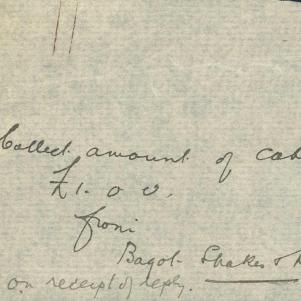 Collect amount of cab
£1. 0 0.
from
Bagot. Shakes &
on receipt of reply.